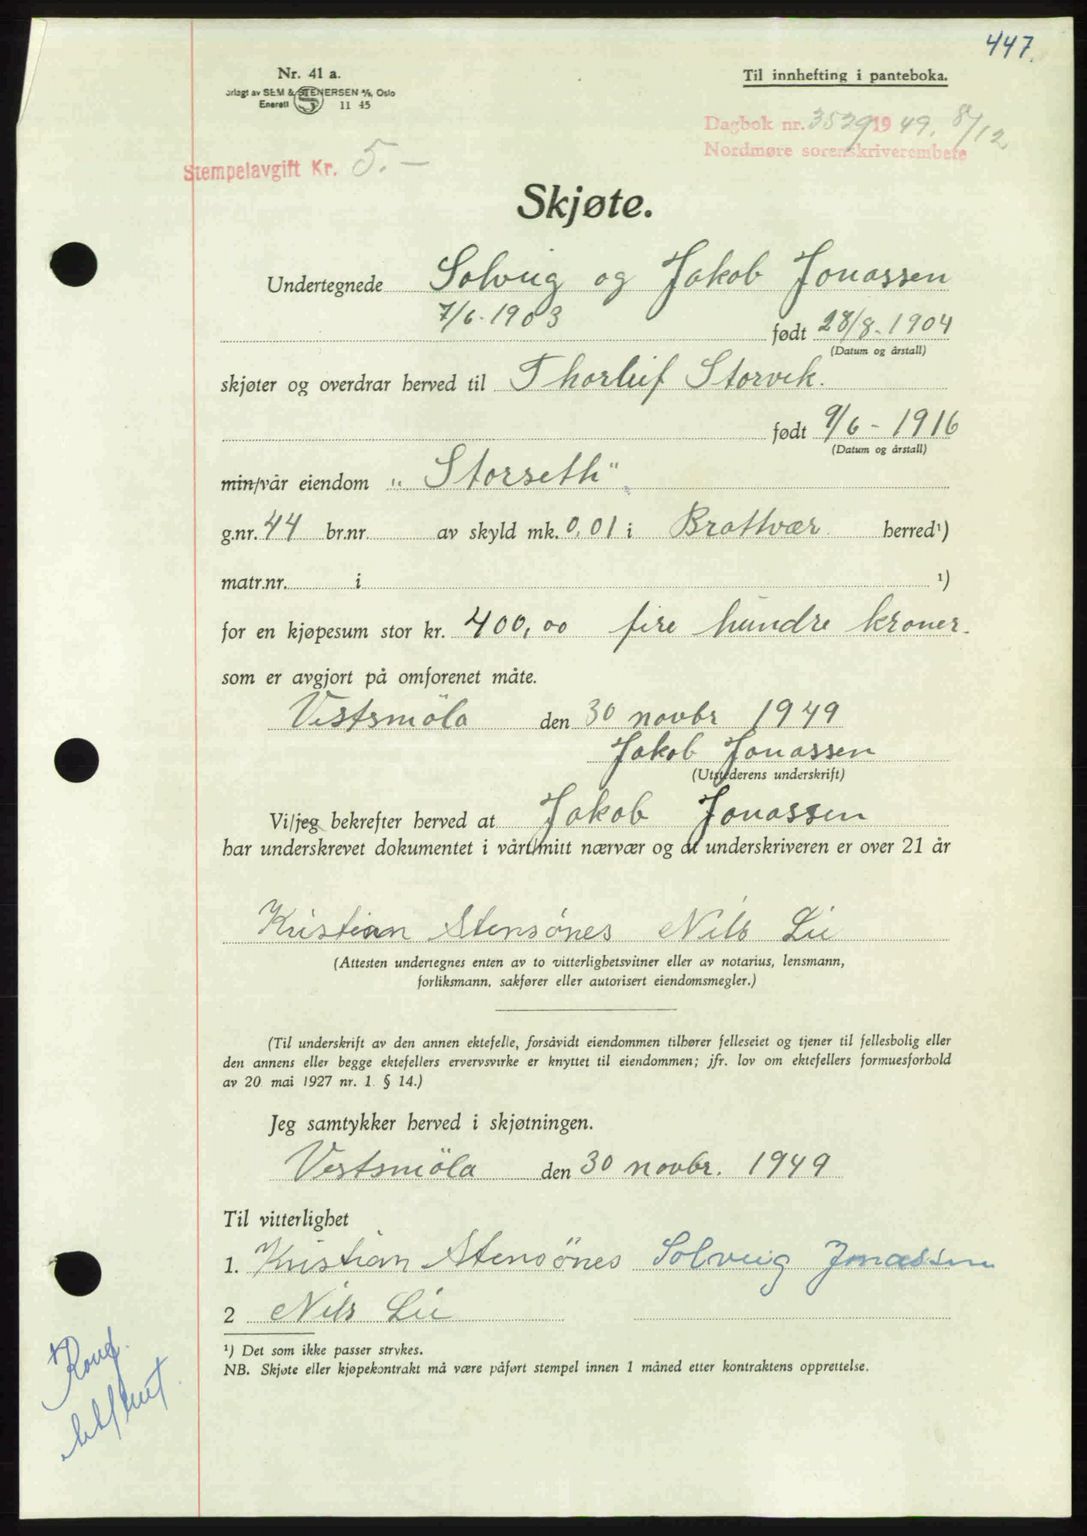 447.
Nr. 41 a.
Til innhefting i panteboka.
orlagt av SEM & STENERSEN A/S, Oslo
Enerett S 11 45
Dagbok nr. 3529 1949. 8/12
Nordmøre sorenskriverembete
Stempelavgift Kr. 5.-
Skjøte.
Undertegnede Solveig og Jakob Jonassen
7/6-1903
født 28/8-1904
(Datum og årstall)
skjøter og overdrar herved til Thorleif Storvik.
født 9/6-1916
(Datum og årstall)
min/vår eiendom "Storseth"
g.nr. 44 br.nr. av skyld mk. 0,01 i Brattvær herred¹)
matr.nr. i ¹)
for en kjøpesum stor kr. 400,00 fire hundre kroner.
som er avgjort på omforenet måte.
Vestsmöla den 30 novbr 1949
Jakob Jonassen
(Utstederens underskrift)
Vi/jeg bekrefter herved at Jakob Jonassen
har underskrevet dokumentet i vårt/mitt nærvær og at underskriveren er over 21 år
Kristian Stensönes Nils Lie
(Attesten undertegnes enten av to vitterlighetsvitner eller av notarius, lensmann,
forliksmann, sakfører eller autorisert eiendomsmegler.)
(Til underskrift av den annen ektefelle, forsåvidt eiendommen tilhører felleseiet og tjener til fellesbolig eller
den annens eller begge ektefellers ervervsvirke er knyttet til eiendommen; jfr. lov om ektefellers formuesforhold
av 20 mai 1927 nr. 1 § 14.)
Jeg samtykker herved i skjøtningen.
Vestsmöla den 30 novbr. 1949
Til vitterlighet
1. Kristian Stensönes Solveig Jonassen
2 Nils Lie
¹) Det som ikke passer strykes.
NB. Skjøte eller kjøpekontrakt må være påført stempel innen 1 måned etter kontraktens opprettelse.